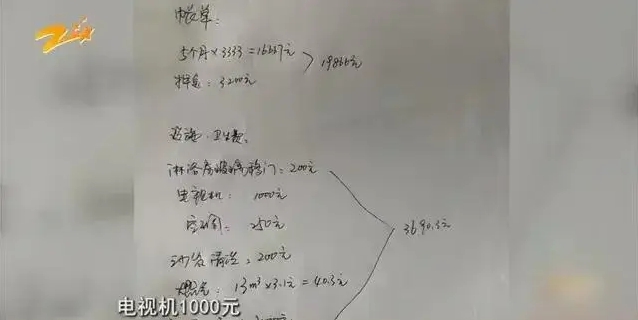 收单:
5个月×3333=16667元
19866元
押金:3200元
卫生费。
淋浴房玻璃移门:200元
电视机:1000元
空调:250元
3690.3元
沙发清洗:200元
燃气:13m³×3.1元=40.3元
电视机1000元